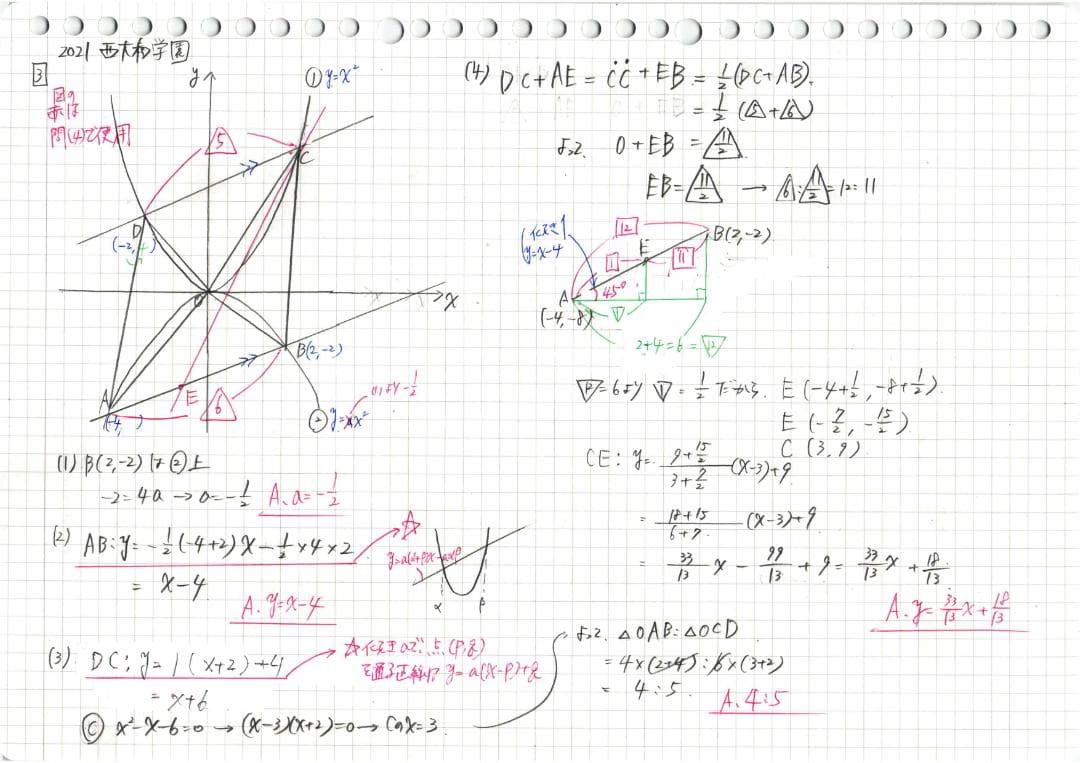 2021 西大和学園
3
図の
赤は
問(4)で使用
y
① y=x²
5
C
D
(-2, 4)
O
x
B(2,-2)
A
(-4, )
E
6
② y=ax²
(1)より-1/2
(1) B(2,-2)は②上
-2=4a → a=-1/2
A. a=-1/2
(2) AB:y=-1/2(-4+2)x-1/2×4×2
= x-4
A. y=x-4
☆
α β
(3) DC:y=1(x+2)+4
= x+6
☆傾きaで点(p,q)
を通る直線は y=a(x-p)+q
Ⓒ x²-x-6=0 → (x-3)(x+2)=0 → Cのx=3
(4) DC+AE=CC+EB=1/2(DC+AB).
=1/2(5+6)
よって. 0+EB=11/2
EB=11/2 → 6:11/2=12:11
傾き1
y=x-4
12
1
E
11
B(2,-2)
A
45°
(-4,-8)
1
2+4=6=12
12=6より 1=1/2だから. E(-4+1/2, -8+1/2).
E(-7/2, -15/2)
C(3,9).
CE:y=(9+15/2)/(3+7/2)(x-3)+9
=(18+15)/(6+7)(x-3)+9
=33/13x-99/13+9=33/13x+18/13
A. y=33/13x+18/13
よって. △OAB:△OCD
=4×(2+4):6×(3+2)
= 4:5.
A. 4:5